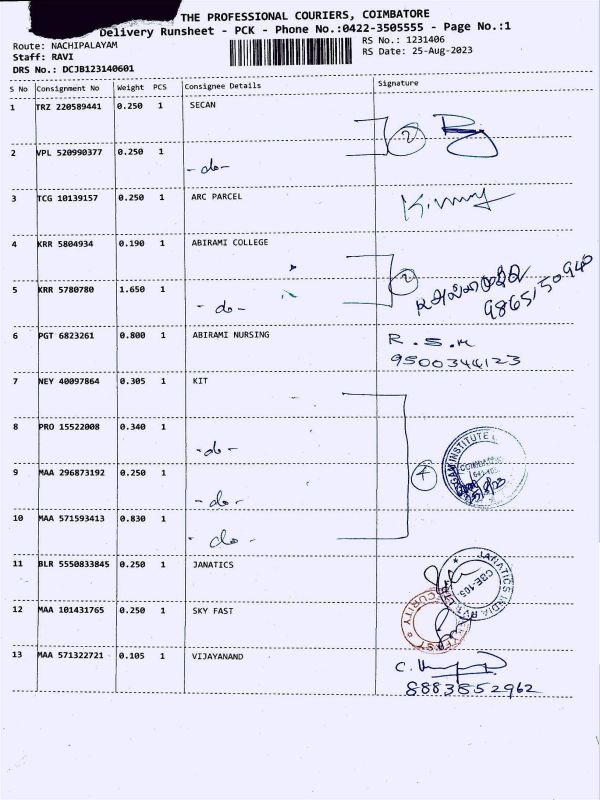 THE PROFESSIONAL COURIERS, COIMBATORE
Delivery Runsheet - PCK - Phone No.:0422-3505555 - Page No.:1
Route: NACHIPALAYAM
RS No.: 1231406
Staff: RAVI
RS Date: 25-Aug-2023
DRS No.: DCJB123140601
S No Consignment No Weight PCS Consignee Details Signature
1 TRZ 220589441 0.250 1 SECAN
2
2 VPL 520990377 0.250 1
- do -
3 TCG 10139157 0.250 1 ARC PARCEL
4 KRR 5804934 0.190 1 ABIRAMI COLLEGE
2
5 KRR 5780780 1.650 1
- do -
9865150940
6 PGT 6823261 0.800 1 ABIRAMI NURSING R.S.M
9500344123
7 NEY 40097864 0.305 1 KIT
8 PRO 15522008 0.340 1
- do -
4
9 MAA 296873192 0.250 1
- do -
10 MAA 571593413 0.830 1
- do -
11 BLR 5550833845 0.250 1 JANATICS
JANATICS INDIA PVT LTD
CBE-105
12 MAA 101431765 0.250 1 SKY FAST
SECURITY
13 MAA 571322721 0.105 1 VIJAYANAND
8883852962